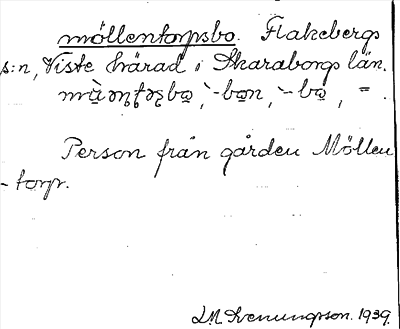 möllentorpsbo. Flakebergs
s:n, Viste härad i Skaraborgs län.
-bo̤n, -bo̤, =.
Person från gården Möllen
-torp.
L.M. Svenungsson. 1939.